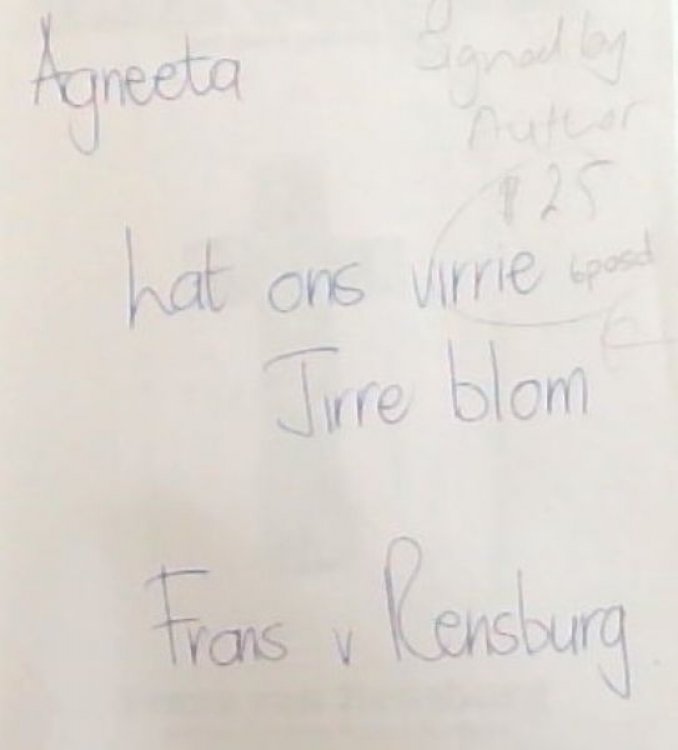 Agneeta
Signed by
Author
$25
hat ons virrie
Jirre blom
Frans v Rensburg